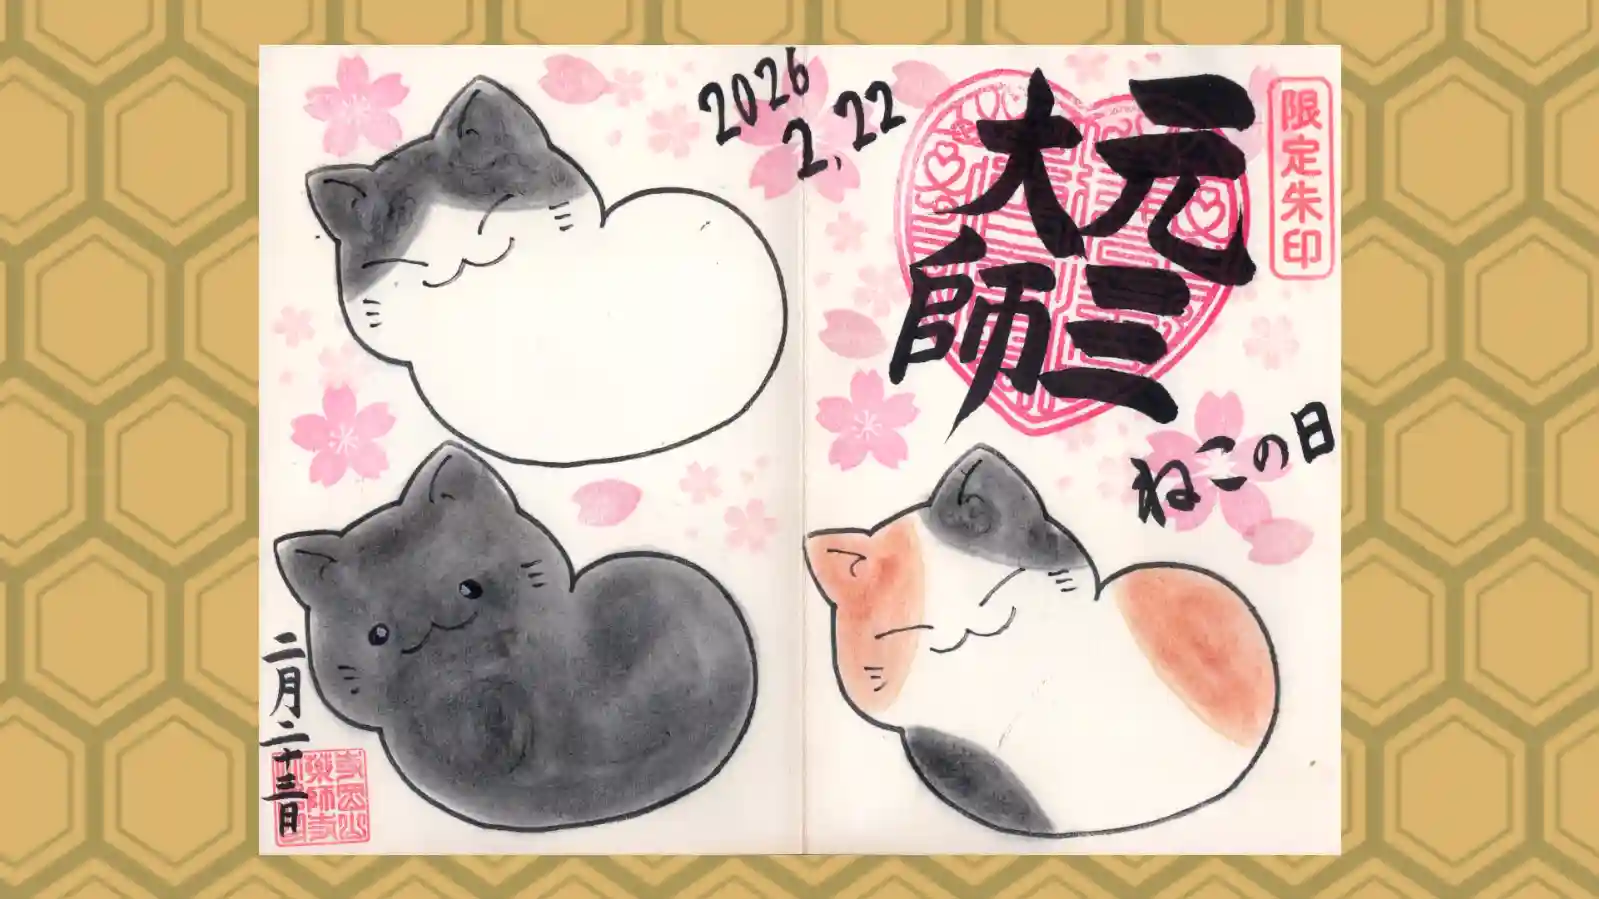 2026
2.22
限定朱印
元三
大師
ねこの日
二月二十三日